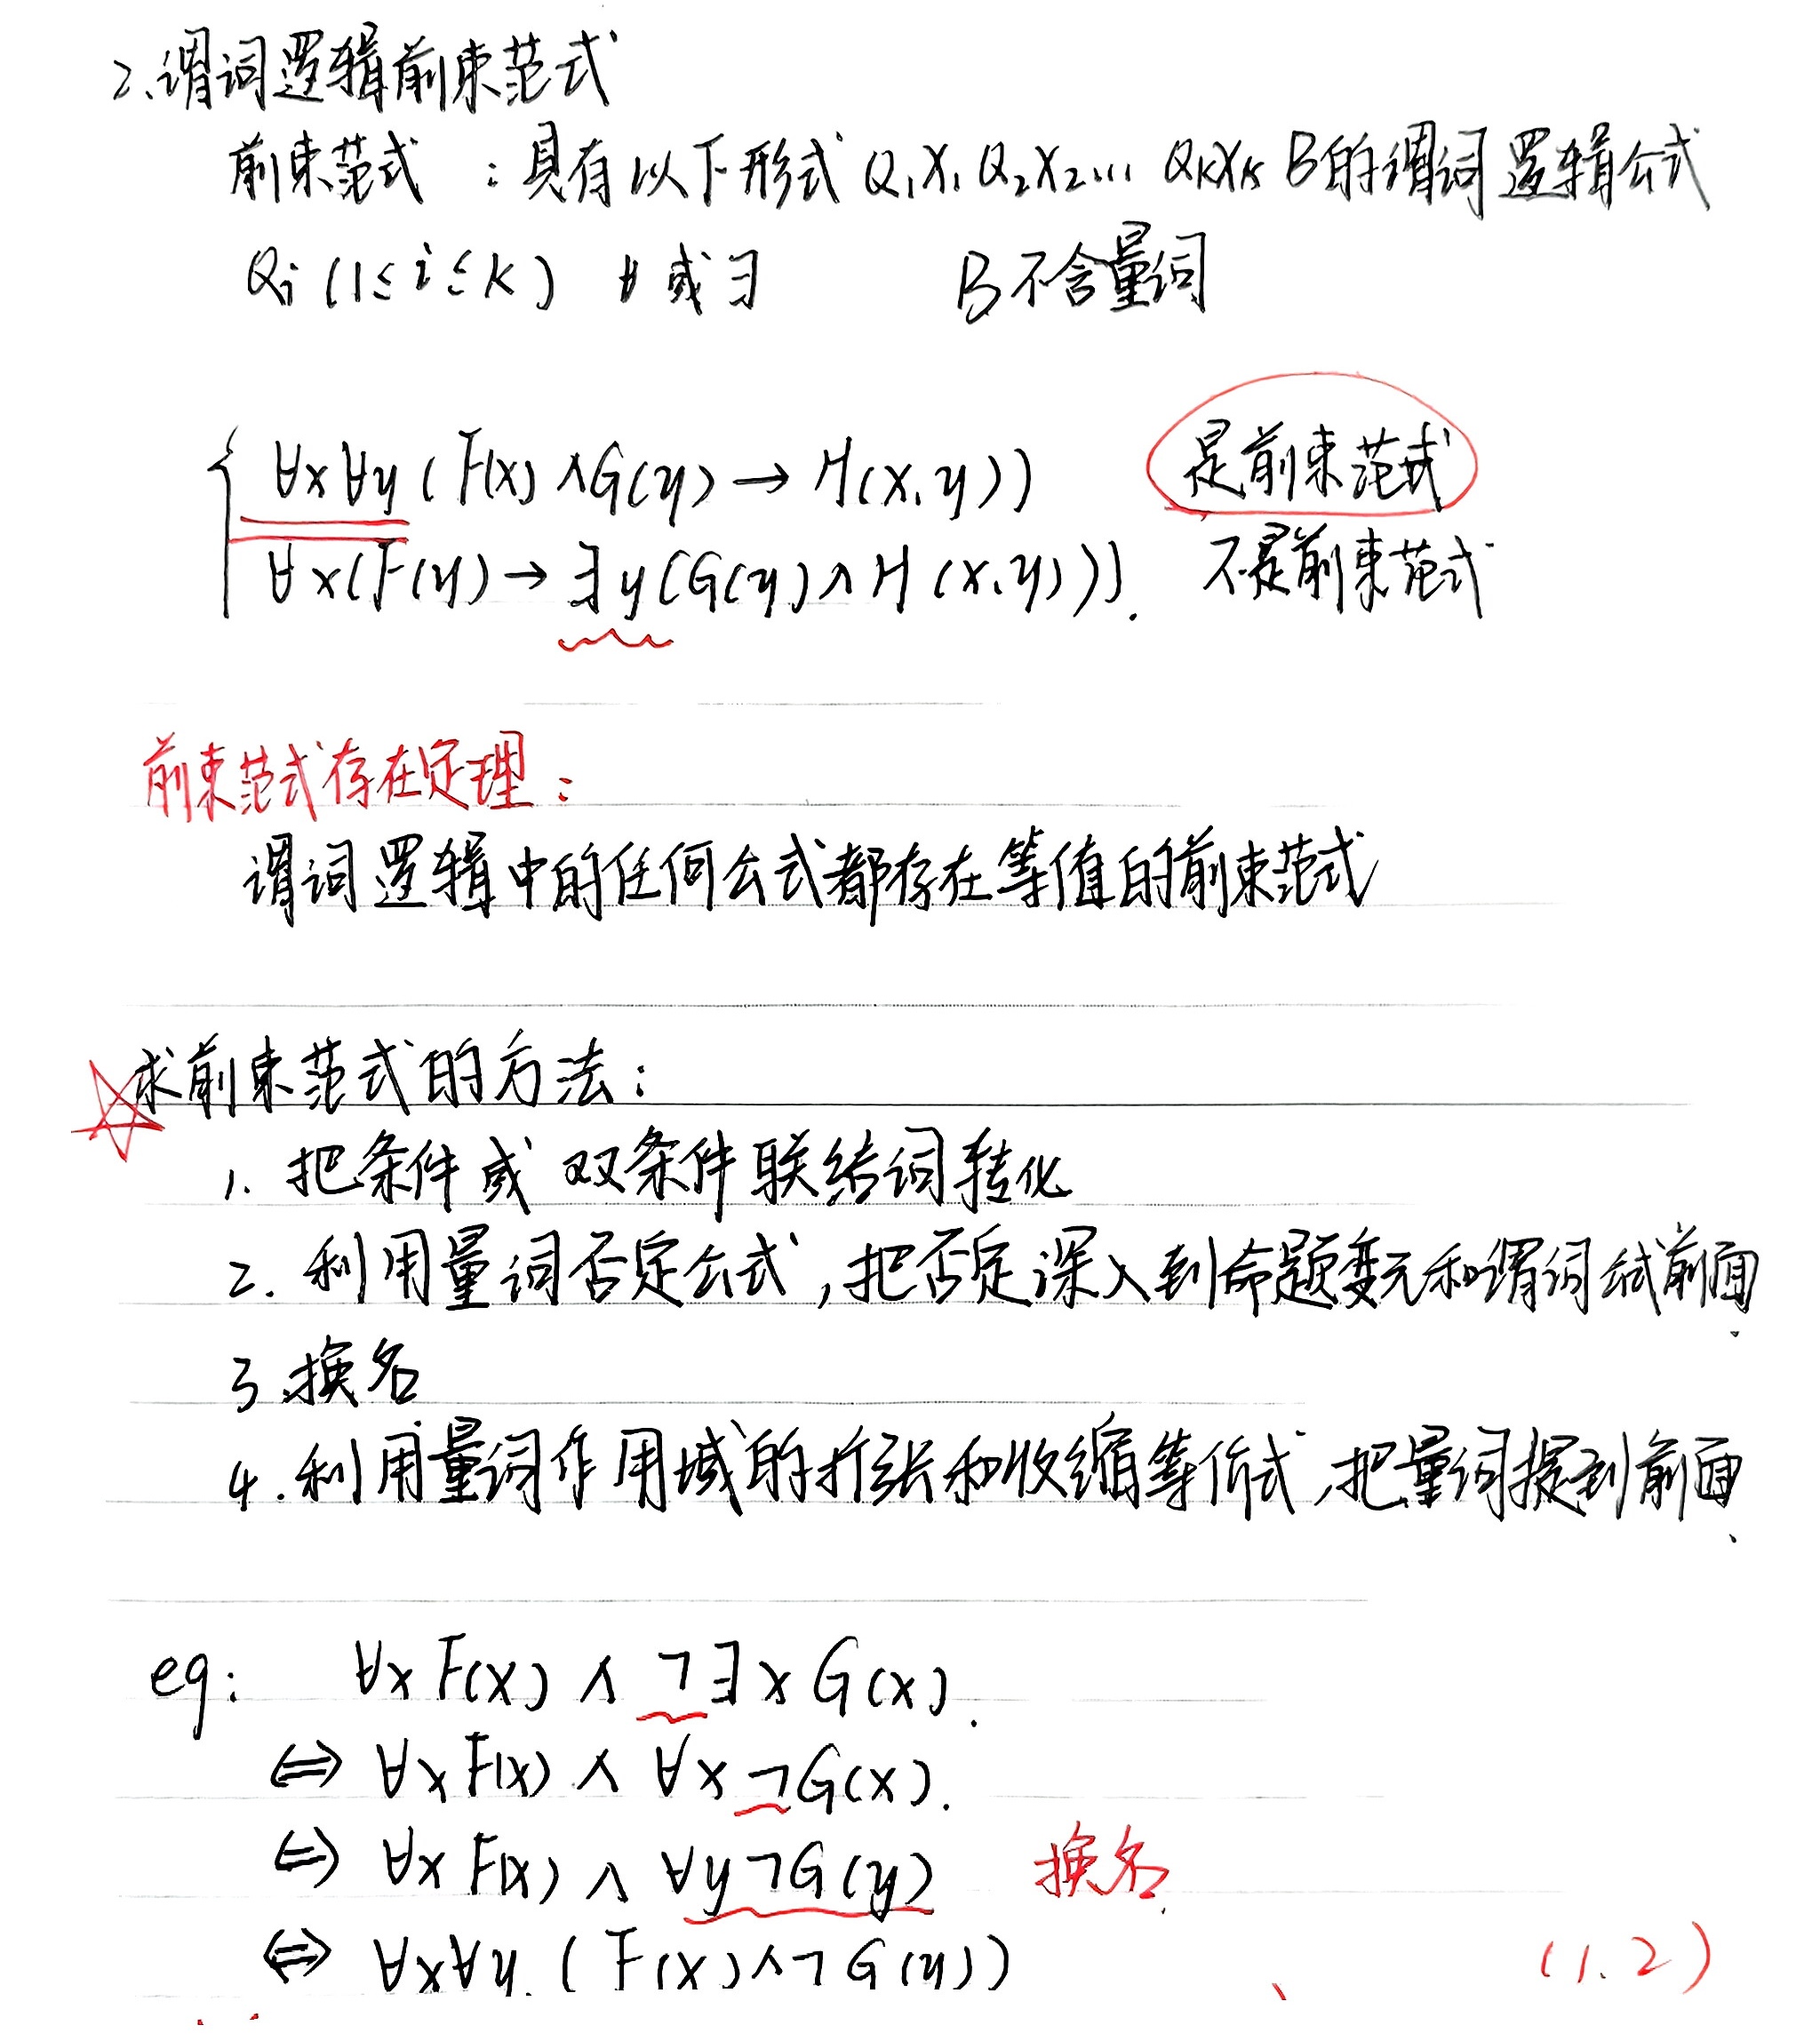 2、谓词逻辑前束范式
前束范式 : 具有以下形式 Q₁X₁ Q₂X₂... QₖXₖ B的谓词逻辑公式
Qi (1≤i≤k) ∀或∃ B不含量词
{ ∀x∀y (F(x)∧G(y)→H(x,y)) 是前束范式
∀x(F(y)→∃y(G(y)∧H(x,y))). 不是前束范式
前束范式存在定理:
谓词逻辑中的任何公式都存在等值的前束范式
☆求前束范式的方法:
1. 把条件或双条件联结词转化
2. 利用量词否定公式,把否定深入到命题变元和谓词公式前面.
3.换名
4.利用量词作用域的扩张和收缩等价式,把量词提到前面、
eg: ∀xF(x)∧¬∃xG(x).
⇔ ∀xF(x)∧∀x¬G(x).
⇔ ∀xF(x)∧∀y¬G(y) 换名
⇔ ∀x∀y.(F(x)∧¬G(y)) (1.2)